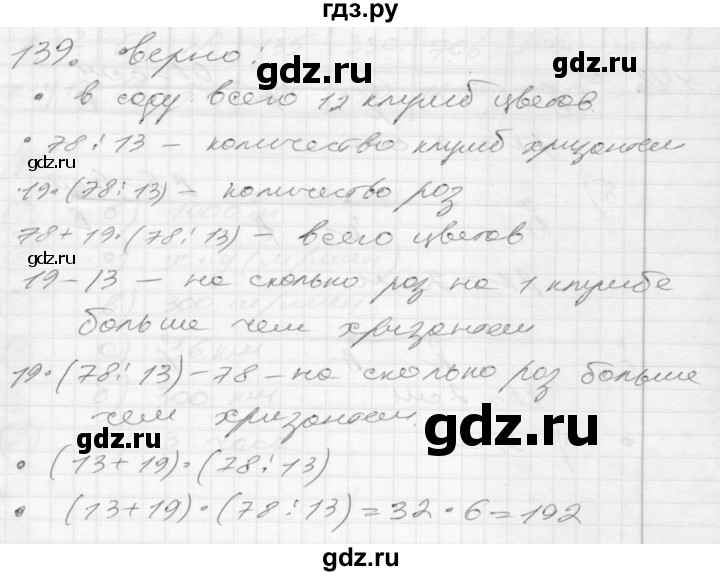 гдз.ру
139. верно:
gdz.ru
• в саду всего 12 клумб цветов
• 78:13 – количество клумб хризантем
gdz.ru
gdz.ru
• 19·(78:13) – количество роз
78+19·(78:13) – всего цветов
gdz.ru
gdz.ru
19-13 – на сколько роз на 1 клумбе
больше чем хризантем
gdz.ru
19·(78:13)-78 – на сколько роз больше
чем хризантем.
gdz.ru
gdz.ru
• (13+19)·(78:13)
• (13+19)·(78:13)=32·6=192
gdz.ru
gdz.ru
гдз.ру